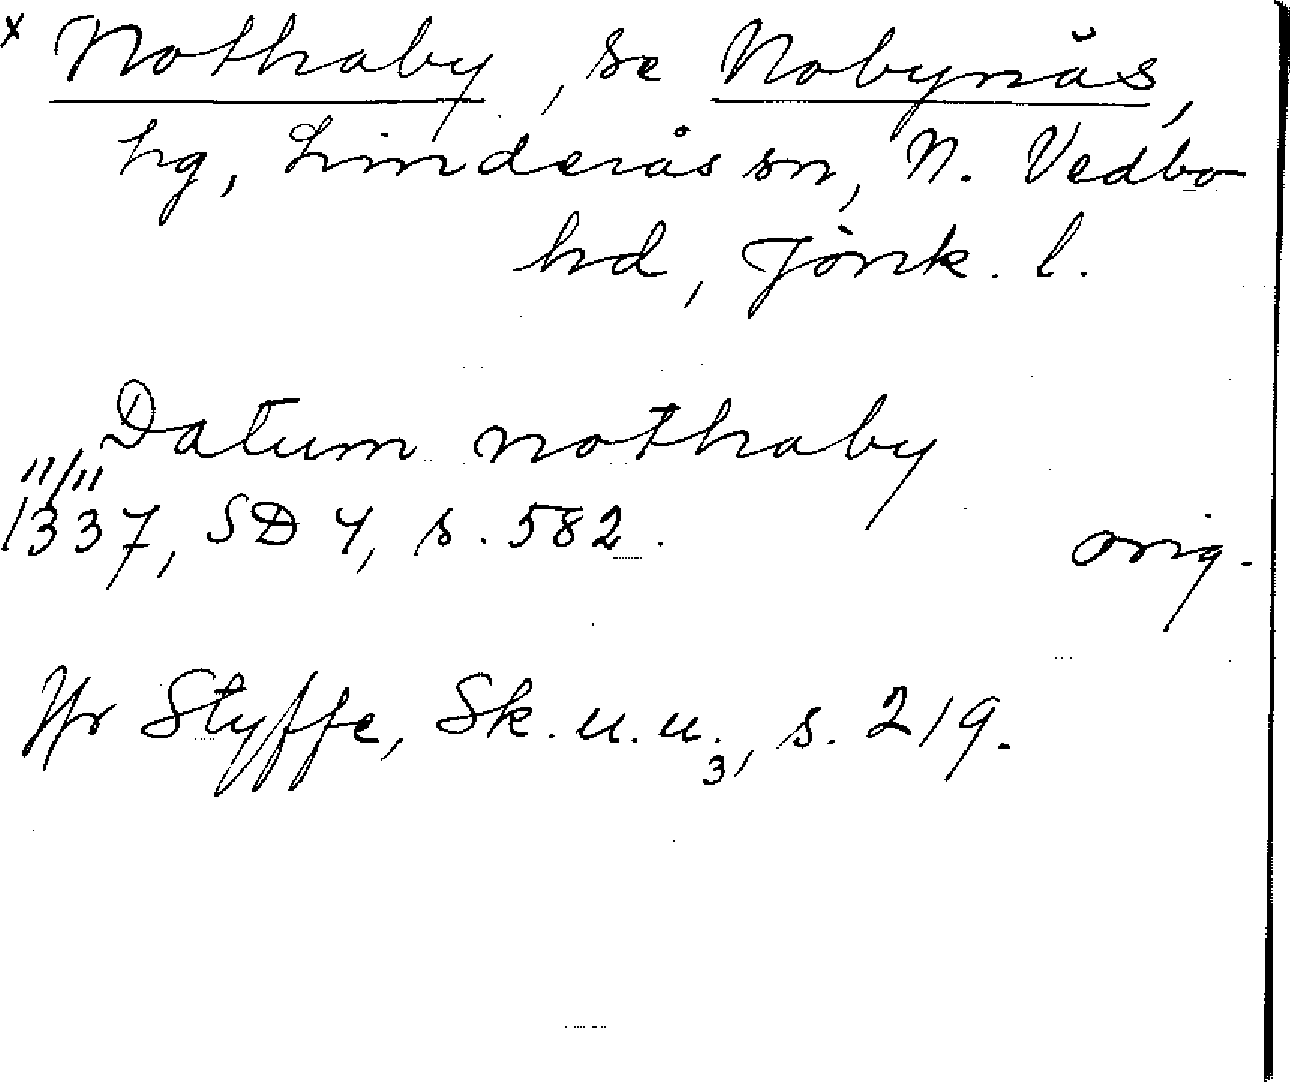 x Nothaby, se Nobynäs,
hg, Linderås sn, N. Vedbo
hd, Jönk. l.
Datum nothaby
11/11
1337, SD 4, s. 582.
orig.
Jfr Styffe, Sk. u. u.3, s. 219.